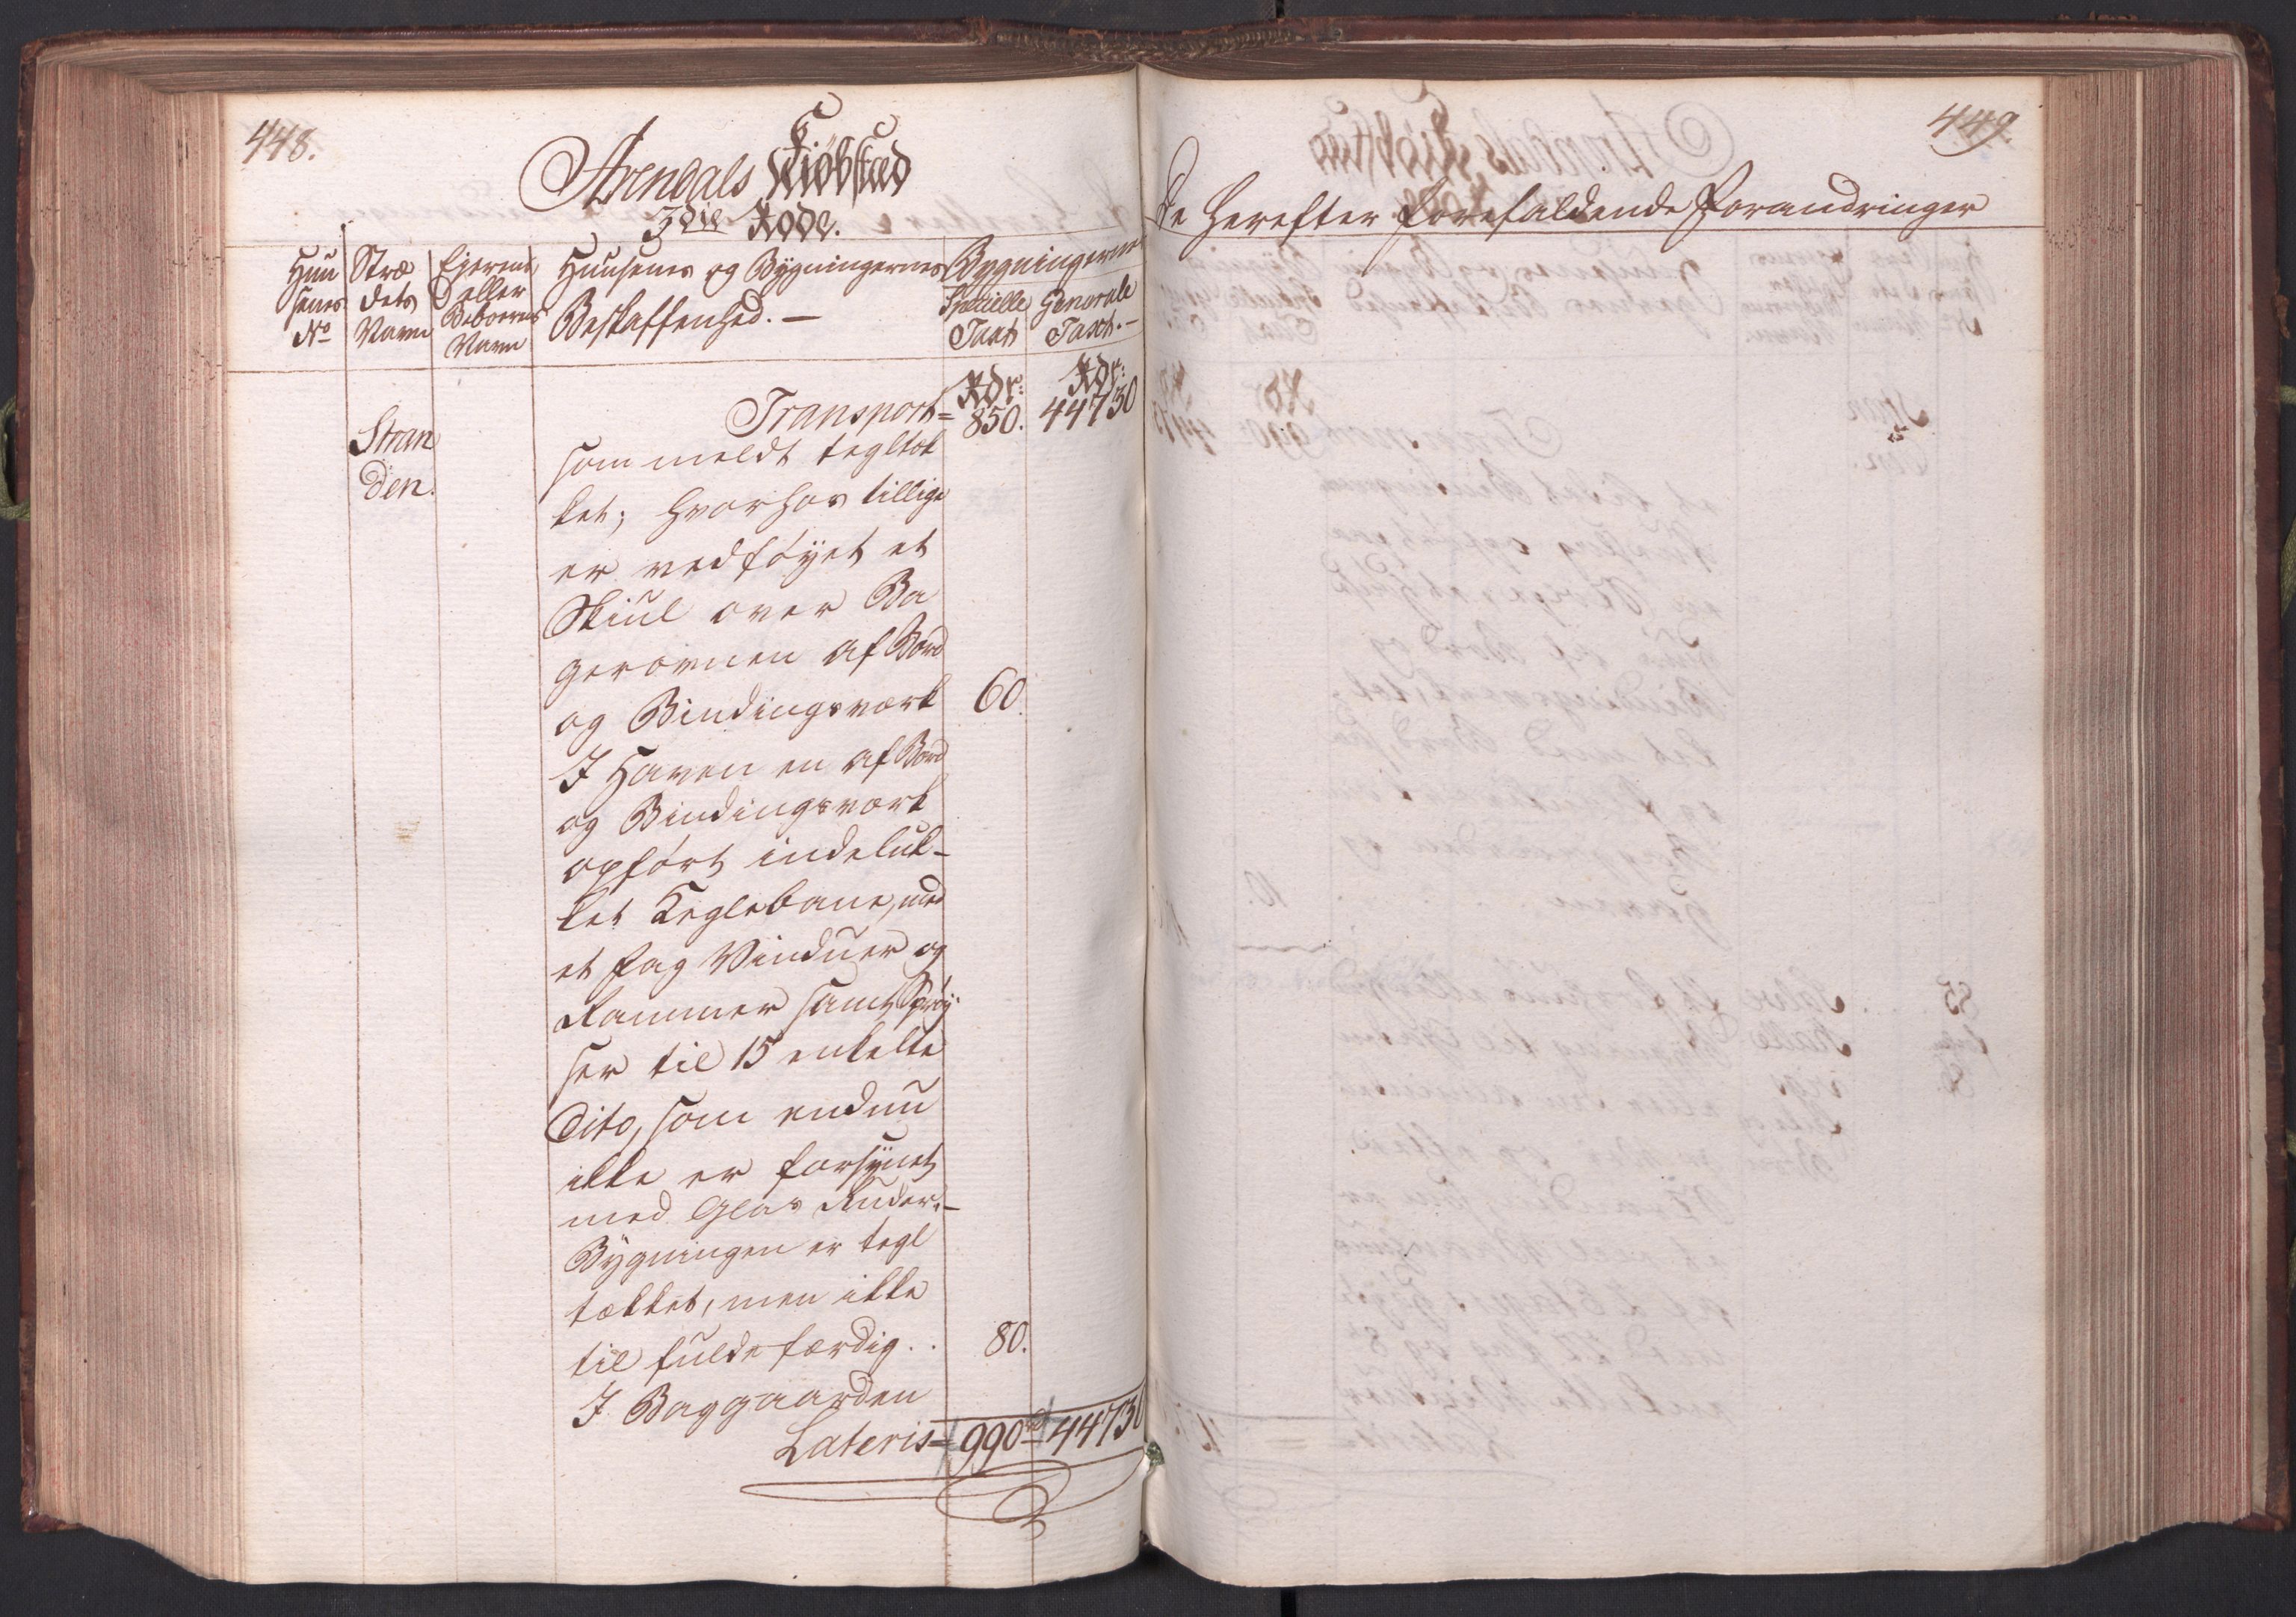 448.
Arendals Kiøbstæd
3die Rode.
Huu
senes
No
Stræ
dets
Navn
Ejerens
eller
Beboerens
Navn
Huusenes og Bygningernes
Beskaffenhed. —
Bygningernes
Specielle
Taxt
Generale
Taxt. —
Rdr: Rdr:
Transport = 850. 44730
Stran
den.
som meldt tegltæk
ket; hvorhos tillige
er vedføyet et
Skiul over Ba
gerovnen af Bord
og Bindingsværk 60.
I Haven en af Bord
og Bindingsværk
opført indeluk-
ket Keglebane, med
et fag Vinduer og
Rammer samt Sprøj
ser til 15 enkelte
Dito, som endnu
ikke er forsynet
med Glas Ruder. —
Bygningen er tegl
tækket, men ikke
til fulde færdig . . 80.
I Baggaarden
Lateris = 990 44730
449
De herefter forefaldende Forandringer